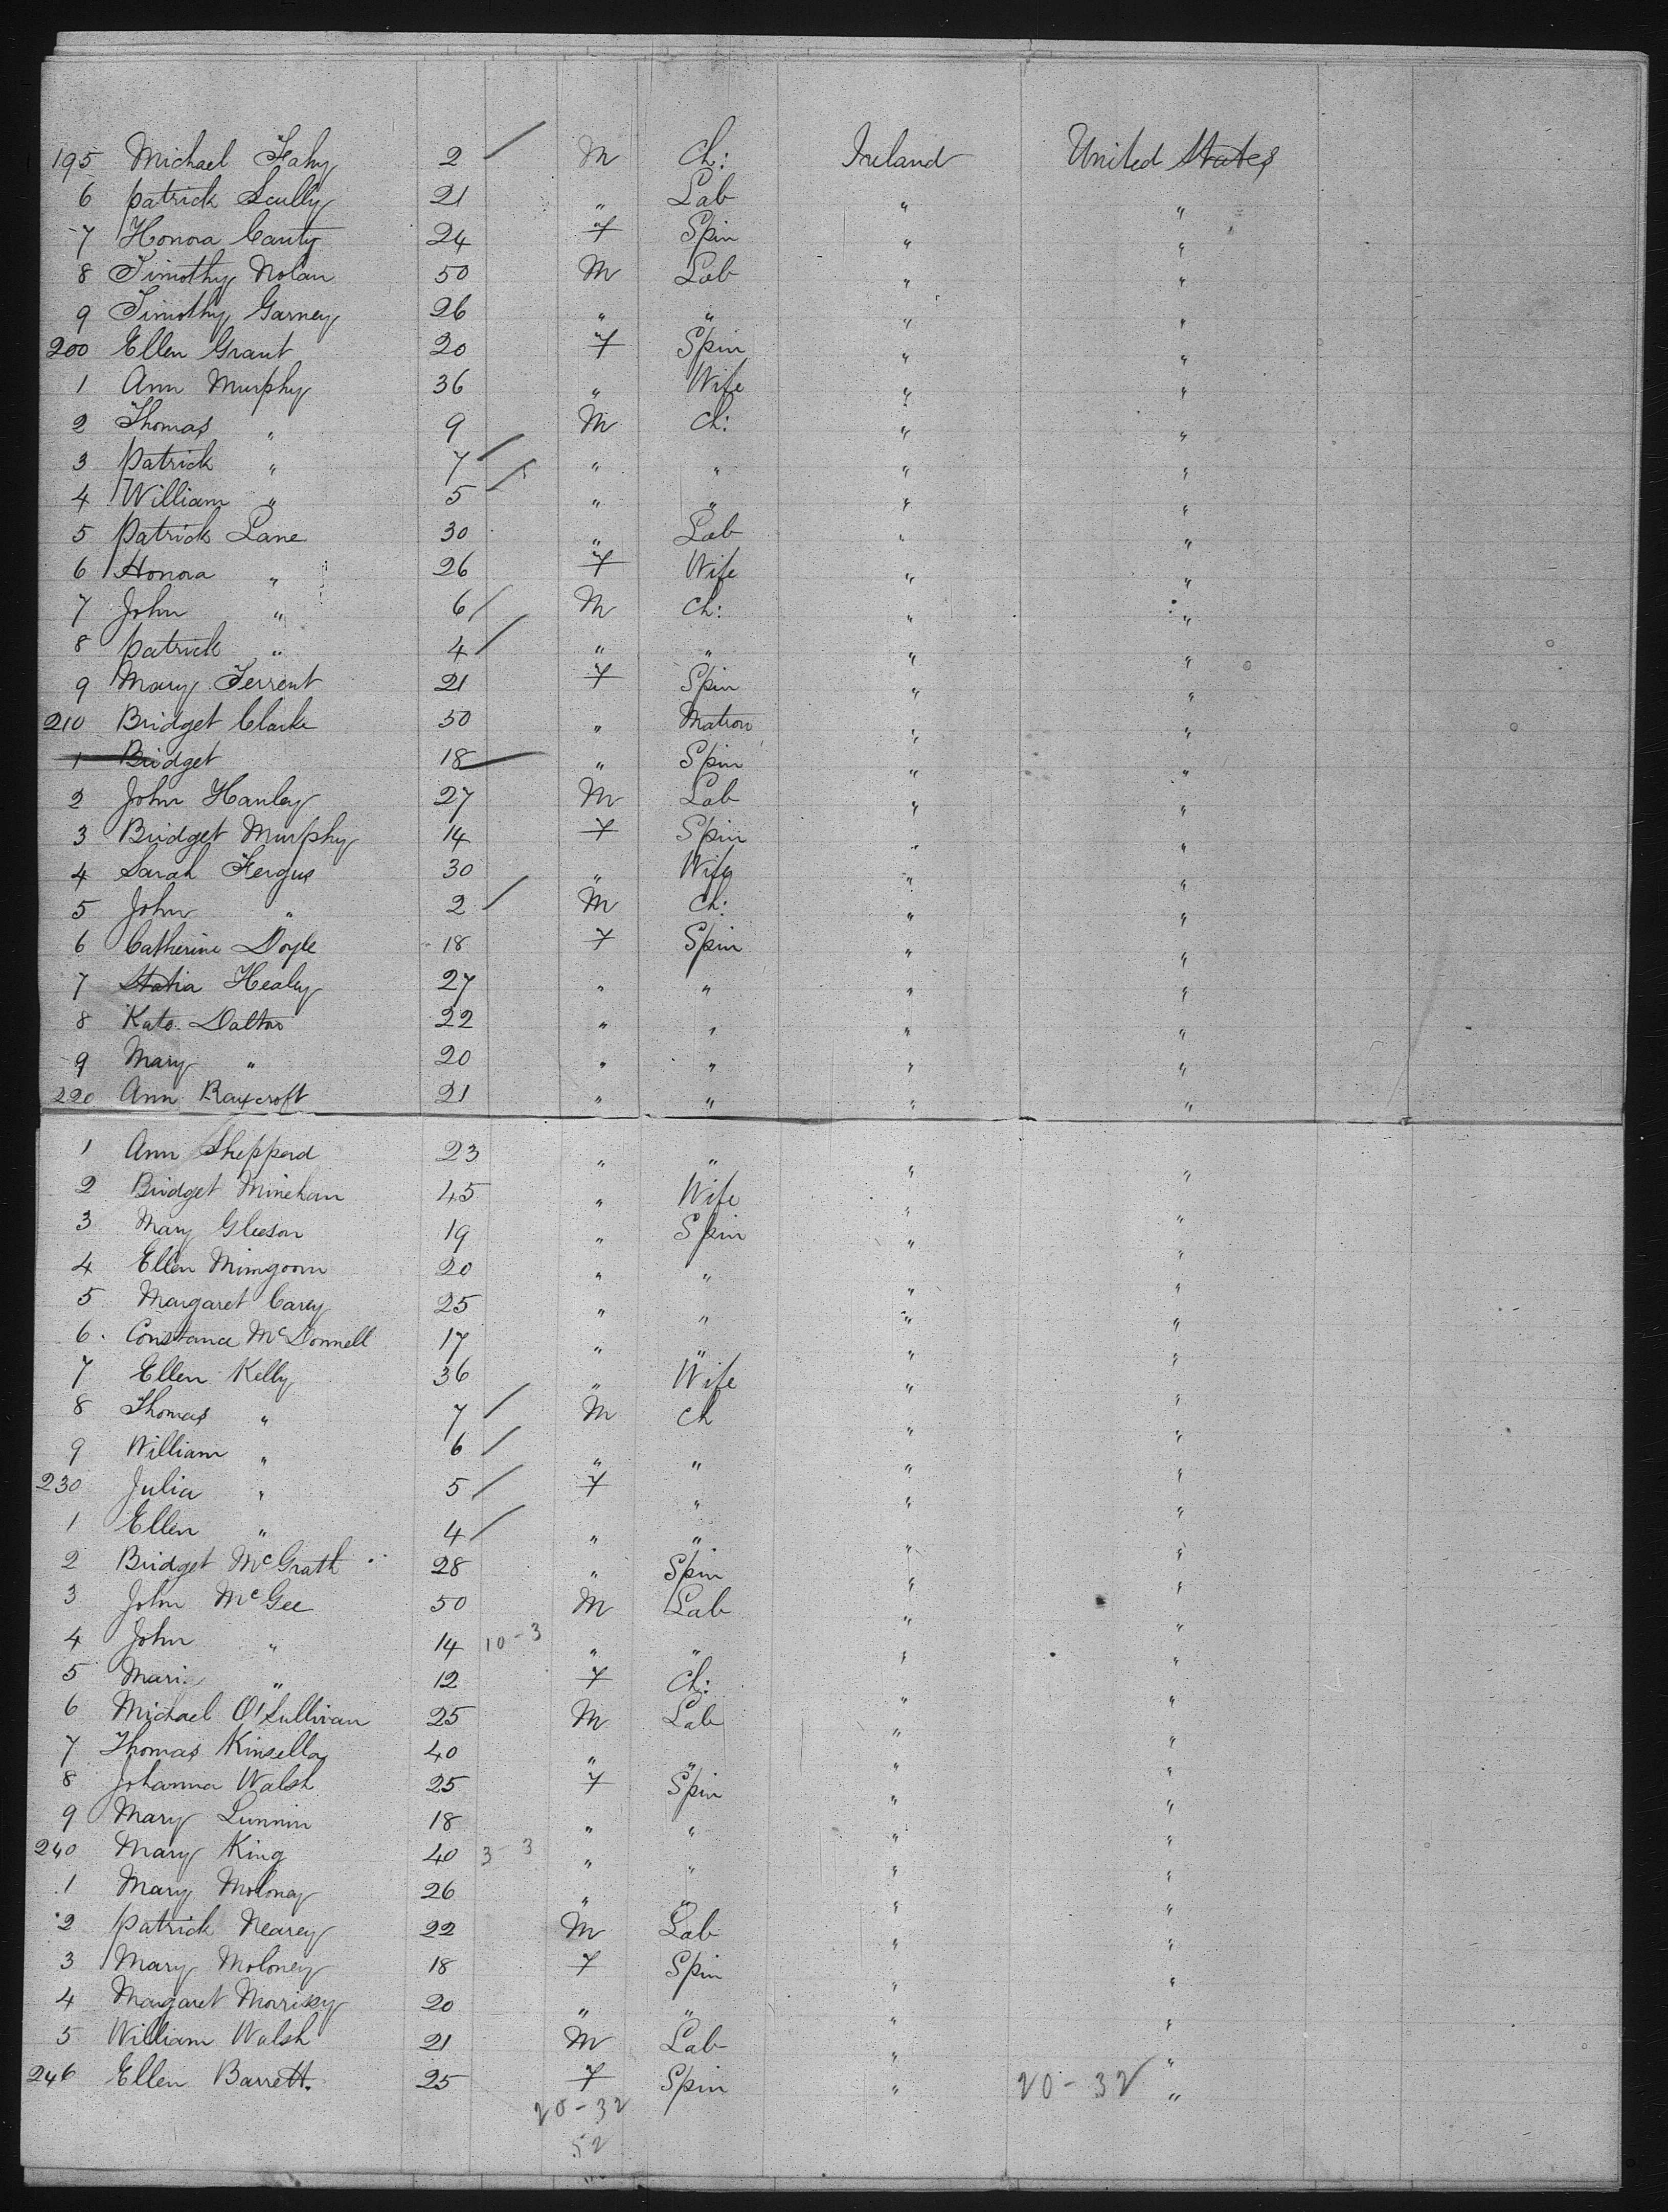 195 Michael Fahy 2 / M Ch: Ireland United States
6 Patrick Scully 21 " Lab " "
7 Honora Canty 24 F Spin " "
8 Timothy Nolan 50 M Lab " "
9 Timothy Garney 26 " " " "
200 Ellen Grant 20 F Spin " "
1 Ann Murphy 36 " Wife " "
2 Thomas " 9 M Ch: " "
3 Patrick " 7 / " " " "
4 William " 5 / " " " "
5 Patrick Lane 30 " Lab " "
6 Honora " 26 F Wife " "
7 John " 6 / M Ch: " "
8 Patrick " 4 / " " " "
9 Mary Ferrent 21 F Spin " "
210 Bridget Clarke 50 " Matron " "
1 Bridget 18 " Spin " "
2 John Hanley 27 M Lab " "
3 Bridget Murphy 14 F Spin " "
4 Sarah Fergus 30 " Wife " "
5 John " 2 / M Ch: " "
6 Catherine Doyle 18 F Spin " "
7 Statia Healey 27 " " " "
8 Kate Dalton 22 " " " "
9 Mary " 20 " " " "
220 Ann 21 " " " "
1 Ann Shepperd 23 " " " "
2 Bridget Minehan 45 " Wife " "
3 Mary Gleeson 19 " Spin " "
4 Ellen 20 " " " "
5 Margaret Carey 25 " " " "
6 Constance McDonnell 17 " " " "
7 Ellen Kelly 36 " Wife " "
8 Thomas " 7 / M Ch " "
9 William " 6 / " " " "
230 Julia " 5 / F " " "
1 Ellen " 4 / " " " "
2 Bridget McGrath 28 " Spin " "
3 John McGee 50 M Lab " "
4 John " 14 10-3 " " " "
5 Maria " 12 F Ch: " "
6 Michael O'Sullivan 25 M Lab " "
7 Thomas Kinsella 40 " " " "
8 Johanna Walsh 25 F Spin " "
9 Mary Lunnin 18 " " " "
240 Mary King 40 3-3 " " " "
1 Mary Moloney 26 " " " "
2 Patrick Nearey 22 M Lab " "
3 Mary Moloney 18 F Spin " "
4 Margaret Morrisey 20 " " " "
5 William Walsh 21 M Lab " "
246 Ellen Barrett. 25 F Spin " 20-32 "
20-32
52